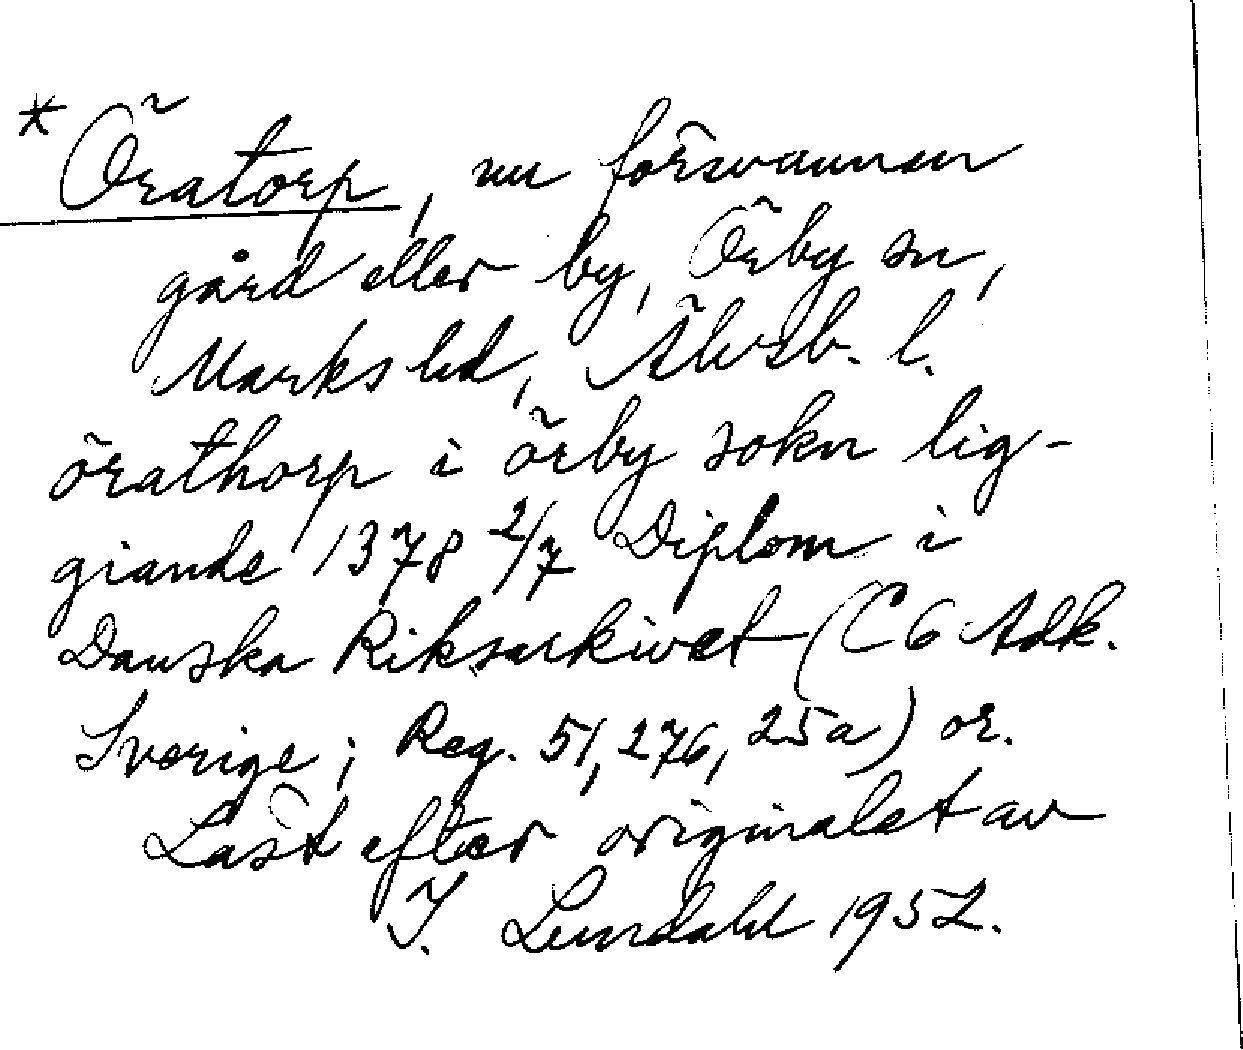 *Öratorp, nu försvunnen
gård eller by, Örby sn,
Marks hd, Älvsb. l.
örathorp i örby sokn lig-
giande 1378 2/7 Diplom i
Danska Riksarkivet (C6 Adk.
Sverige; Reg. 51, 276, 25a) or.
Läst efter originalet av
I. Lundahl 1952.